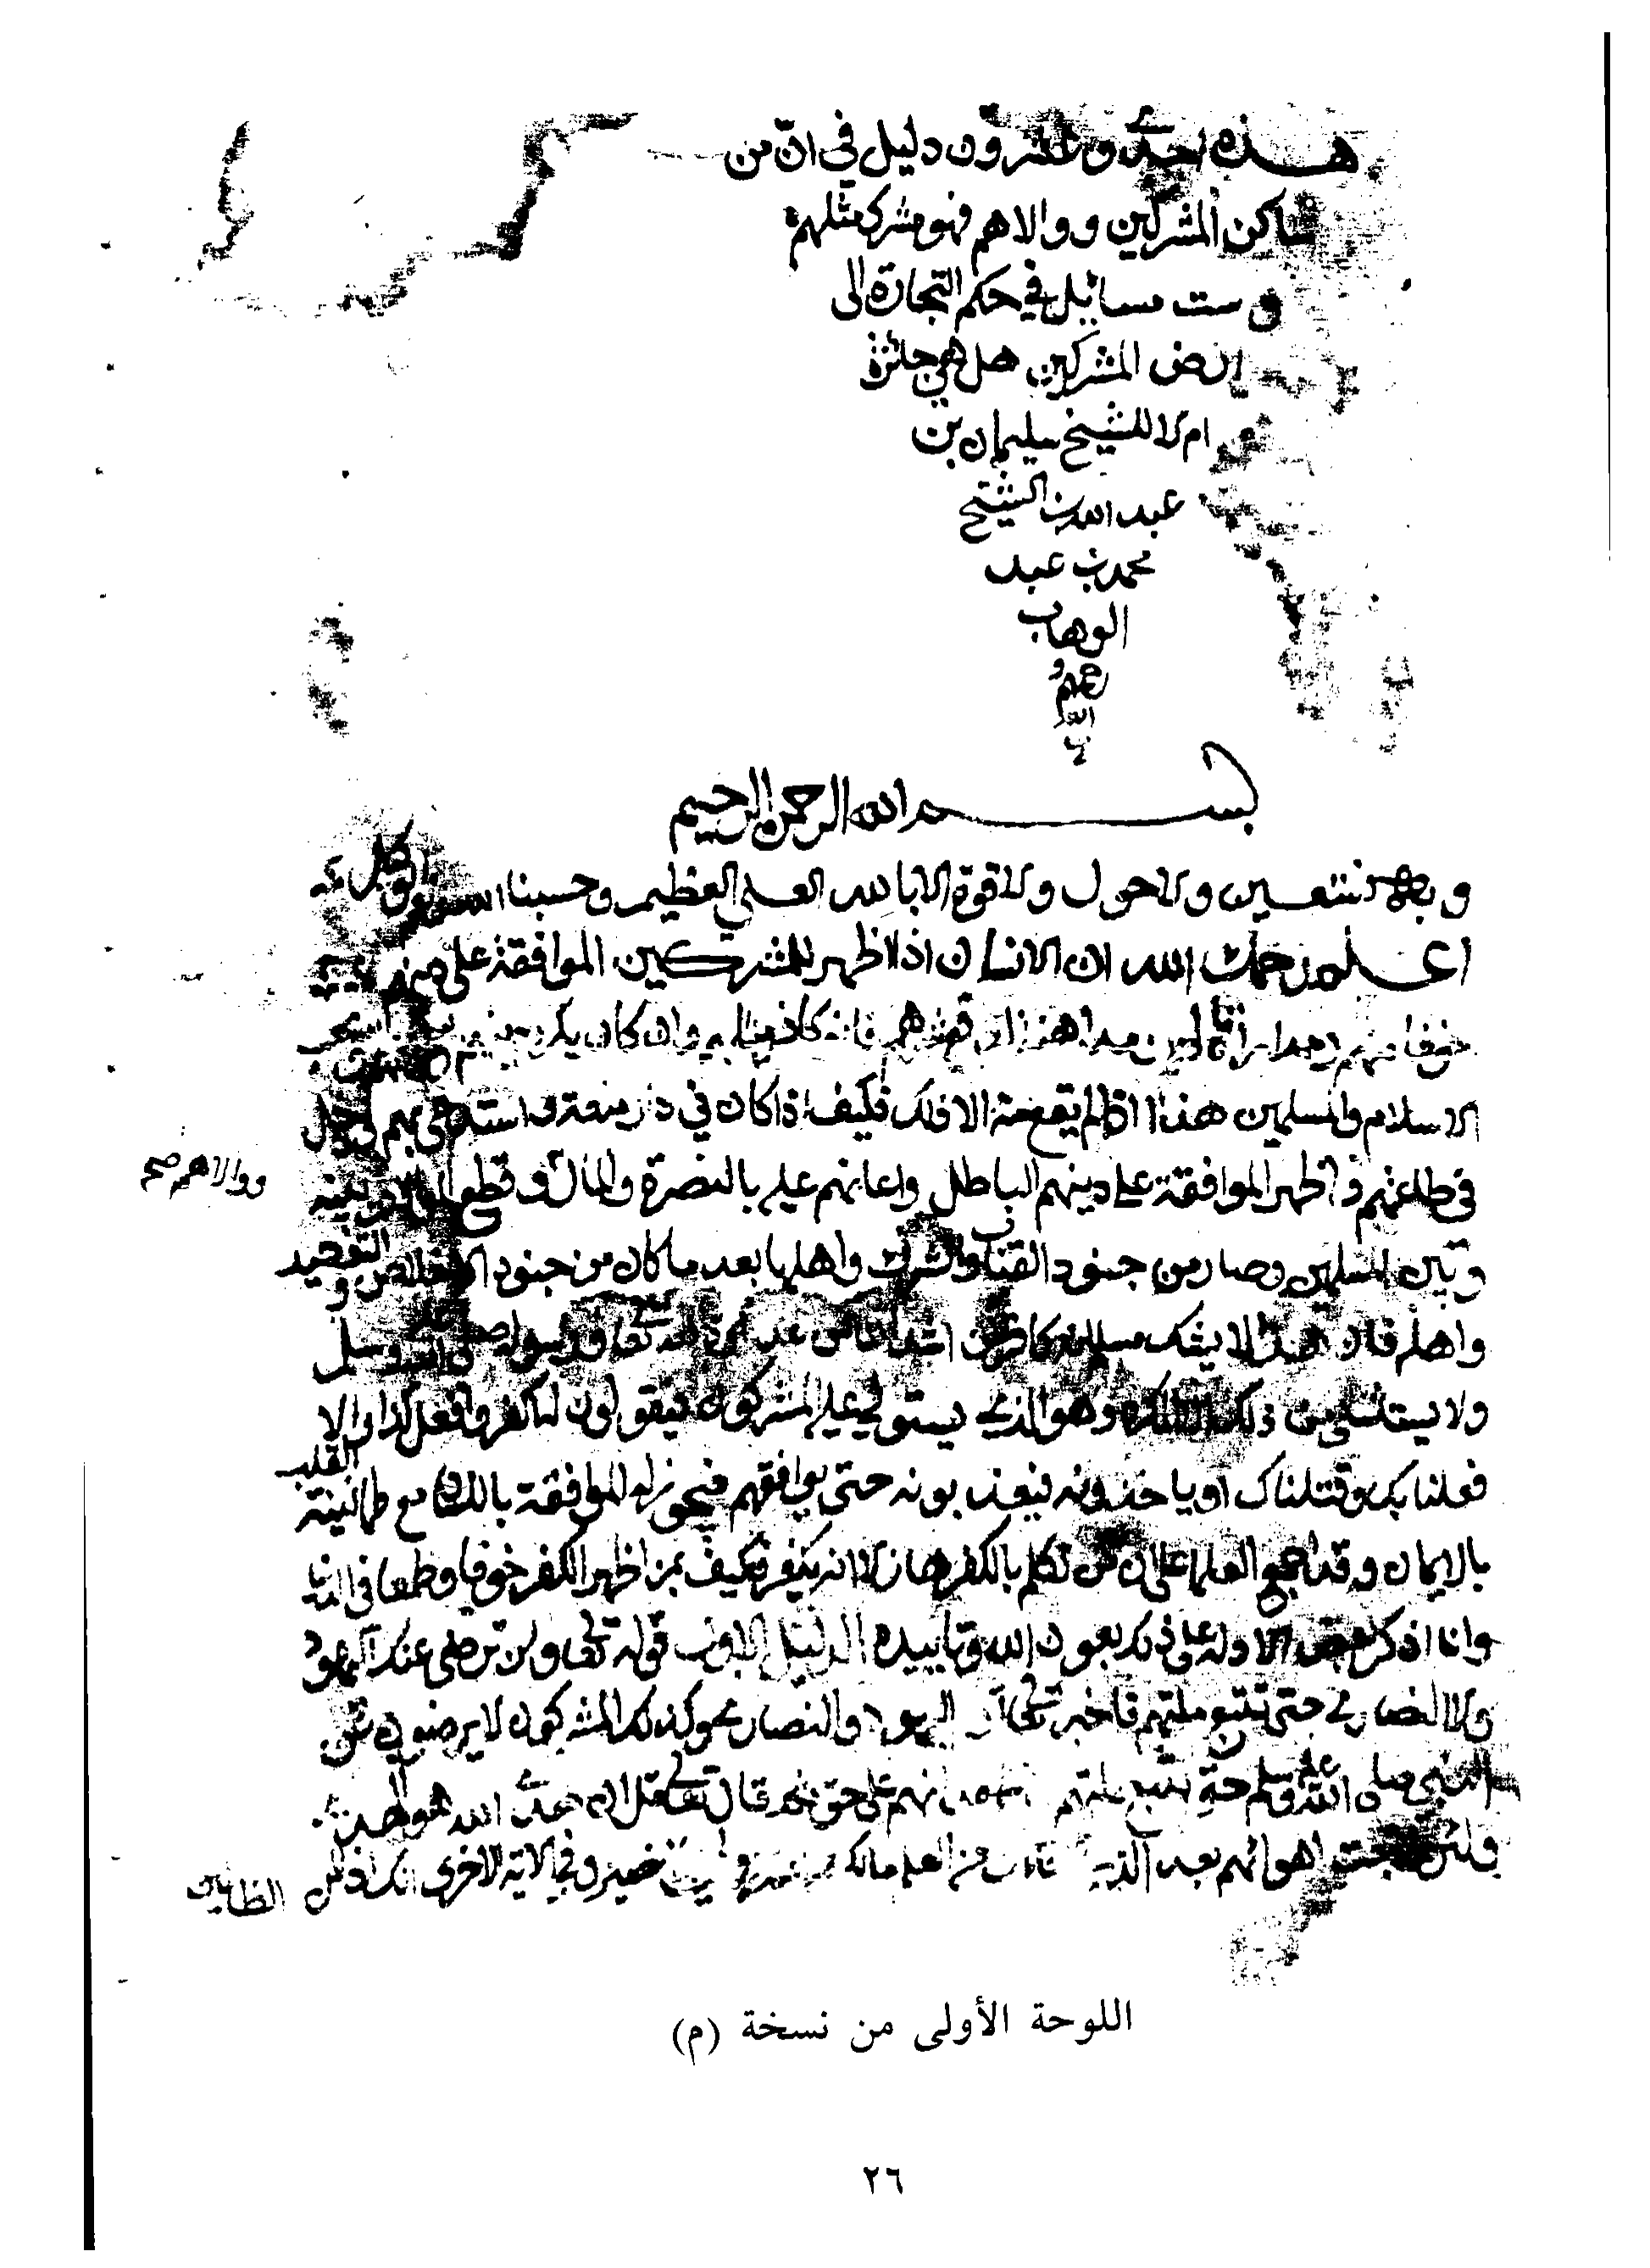 هذه احدى وعشرون دليل في انّ من
ساكن المشركين ووالاهم فهو مشرك مثلهم
وست مسائل في حكم التجارة الى
ارض المشركين هل هي جائزة
ام لا للشيخ سليمان بن
عبد الله بن الشيخ
محمد بن عبد
الوهاب
رحمهم
الله
بسم الله الرحمن الرحيم
وبه نستعين ولا حول ولا قوة الا بالله العلي العظيم وحسبنا الله ونعم الوكيل
اعلم رحمك الله ان الانسان اذا اظهر للمشركين الموافقة على دينهم
خوفا منهم فانه كافر مثلهم وان كان يكره دينهم ويحب
الاسلام والمسلمين هذا اذا لم يقع منه الا ذلك فكيف اذا كان في دار منعة واستدعى بهم ودخل
في طاعتهم واظهر الموافقة على دينهم الباطل واعانهم عليه بالنصرة والمال وقطع الموالاة بينه
ووالاهم صح
وبين المسلمين وصار من جنود القباب والشرك واهلها بعد ما كان من جنود الاخلاص والتوحيد
واهله فان هذا لا يشك مسلم انه كافر من اشد الناس عداوة لله تعالى ورسوله صلى الله عليه وسلم
ولا يستثنى من ذلك الا المكره وهو الذي يستولي عليه المشركون فيقولون له اكفر وافعل كذا والا
فعلنا بك وقتلناك او ياخذونه فيعذبونه حتى يوافقهم فيجوز له الموافقة باللسان مع طمانينة القلب
بالايمان وقد اجمع العلما على ان من تكلم بالكفر هازلا انه يكفر فكيف بمن اظهر الكفر خوفا وطمعا في الدنيا
وانا اذكر بعض الادلة على ذلك بعون الله وتاييده الدليل الاول قوله تعالى ولن ترضى عنك اليهود
ولا النصارى حتى تتبع ملتهم فاخبر تعالى ان اليهود والنصارى وكذلك المشركون لا يرضون عن
النبي صلى الله عليه وسلم حتى يتبع ملتهم انهم على حق ثم قال تعالى قل ان هدى الله هو الهدى
ولئن اتبعت اهوائهم بعد الذي جاءك من العلم مالك من الله من ولي ولا نصير وفي الاية الاخرى انك اذا لمن الظالمين
اللوحة الأولى من نسخة (م)
٢٦